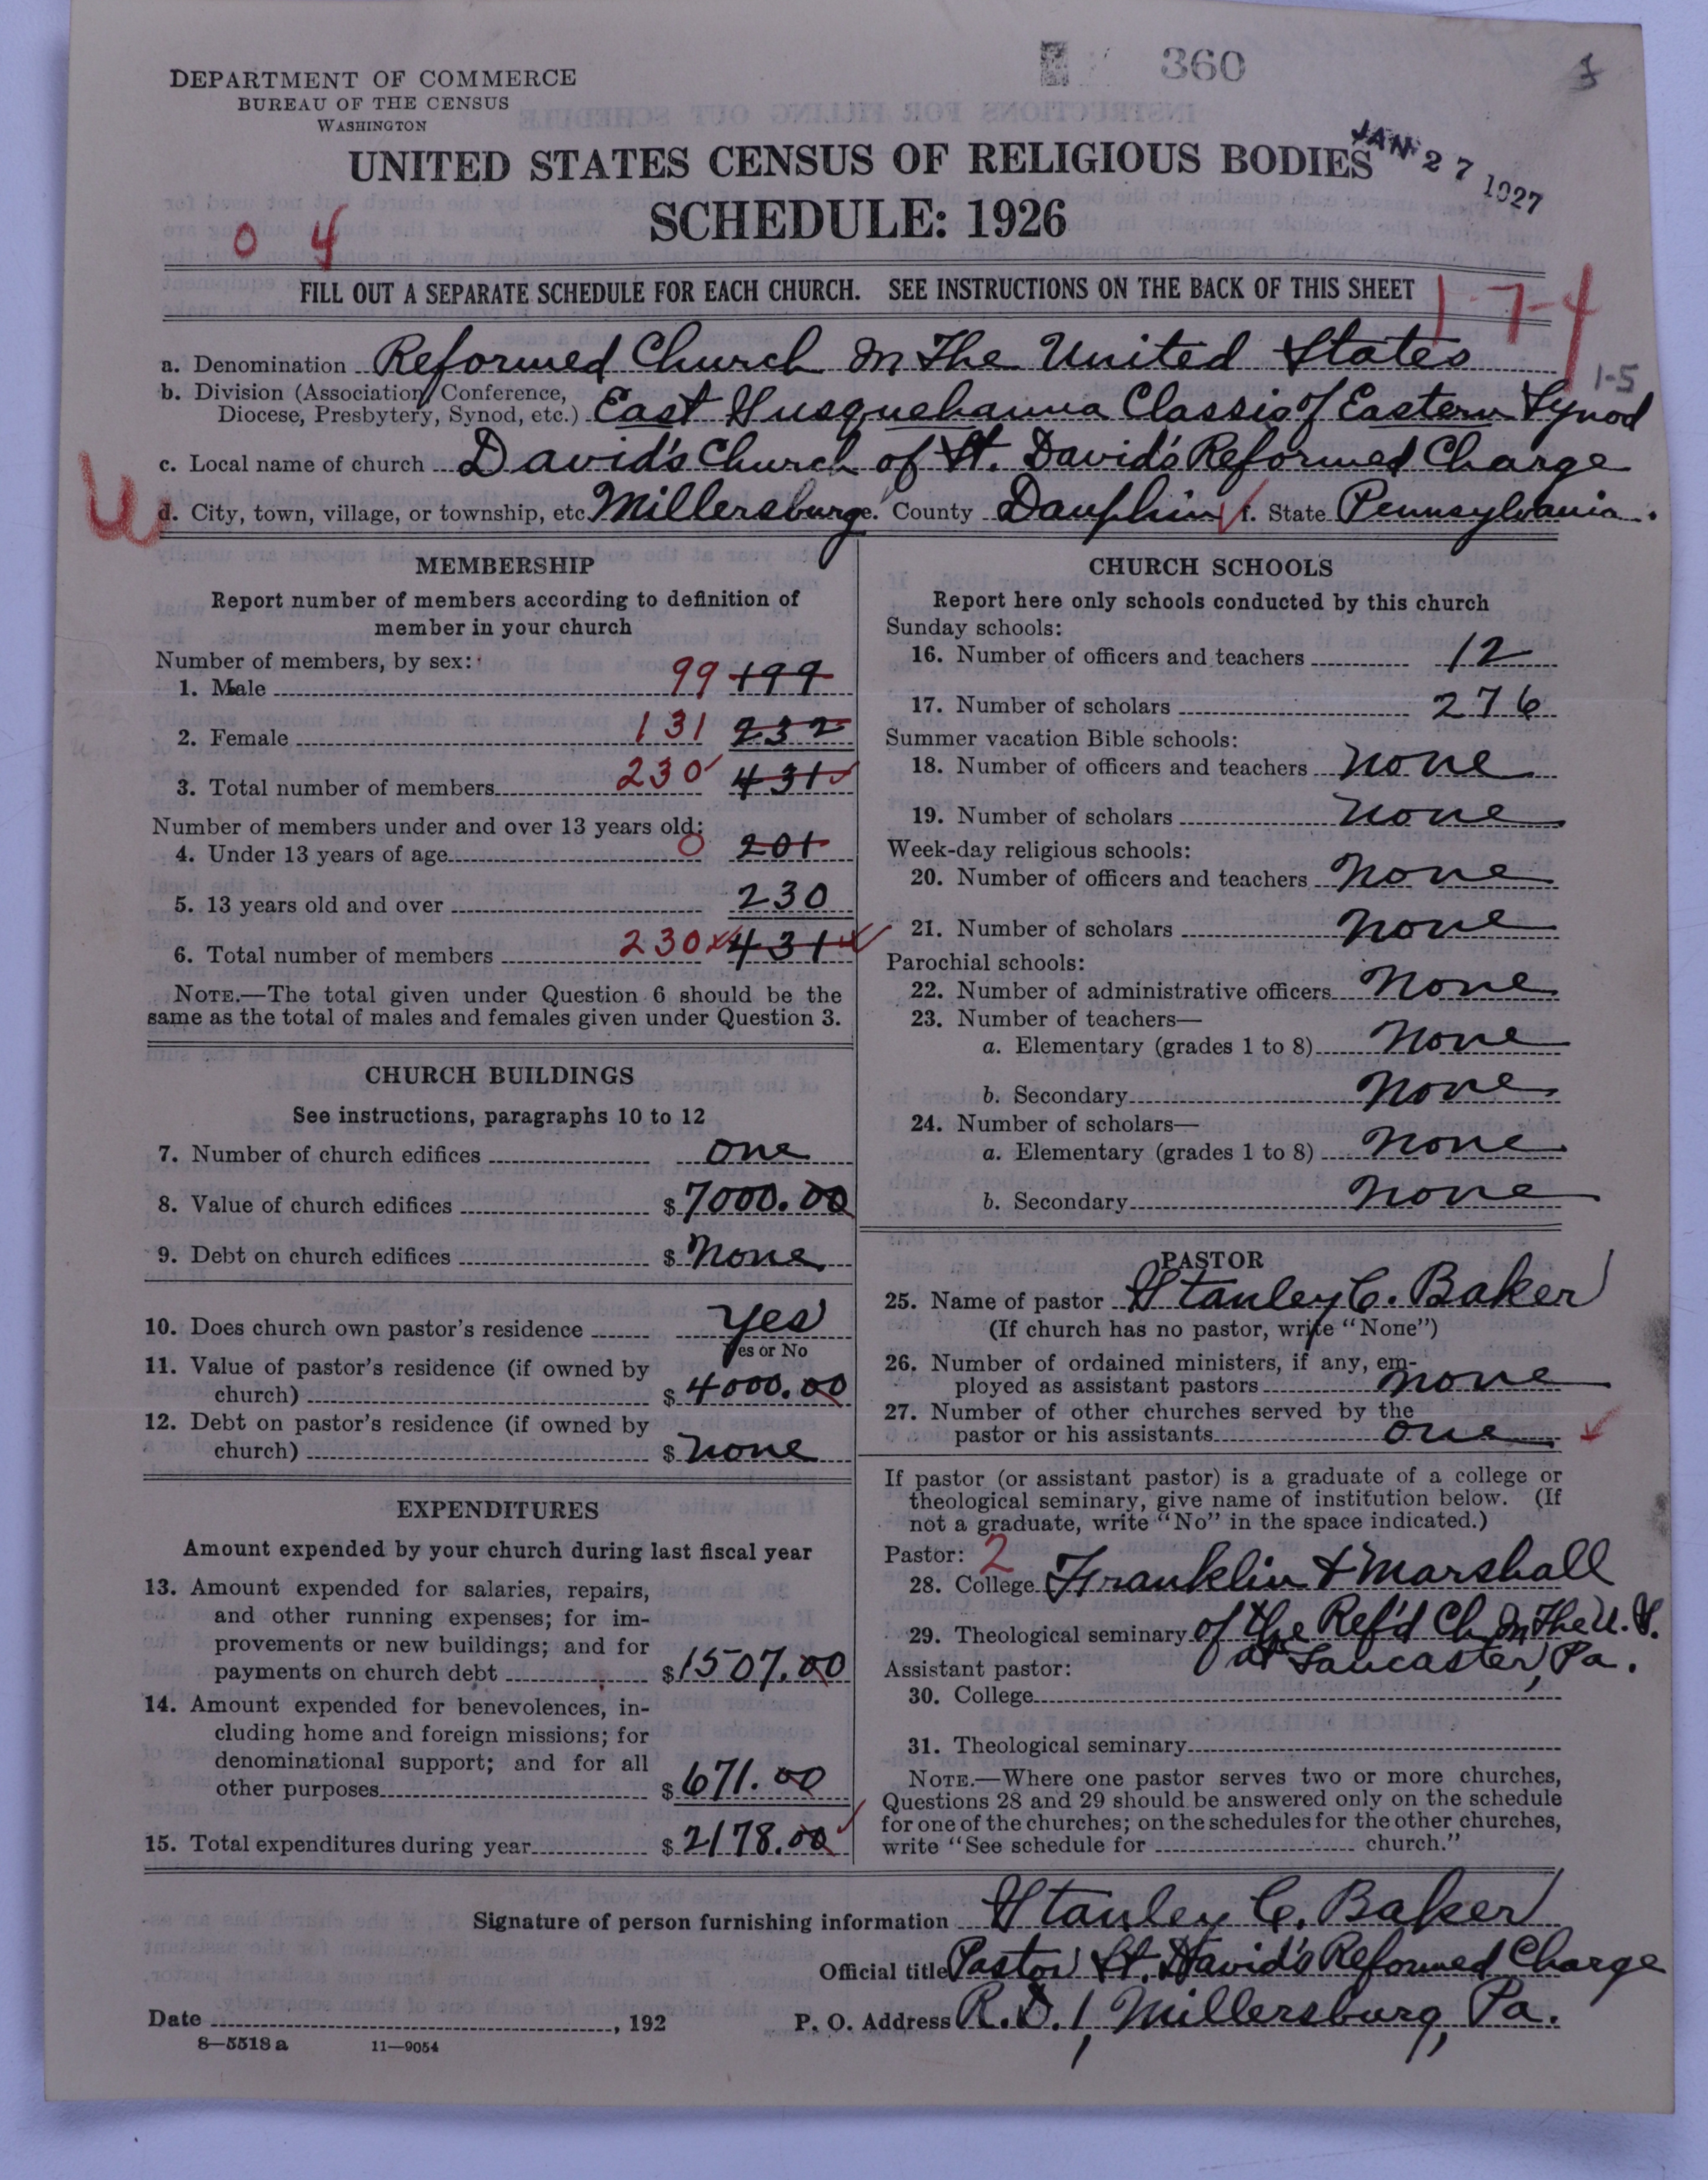 360
DEPARTMENT OF COMMERCE
BUREAU OF THE CENSUS
WASHINGTON
UNITED STATES CENSUS OF RELIGIOUS BODIES
JAN 27 1927
SCHEDULE: 1926
0 4
FILL OUT A SEPARATE SCHEDULE FOR EACH CHURCH. SEE INSTRUCTIONS ON THE BACK OF THIS SHEET
1-7-4
a. Denomination Reformed Church In The United States
1-5
b. Division (Association, Conference,
Diocese, Presbytery, Synod, etc.) East Susquehanna Classis of Eastern Synod
c. Local name of church David's Church of St. David's Reformed Charge
d. City, town, village, or township, etc. Millersburg e. County Dauphin f. State Pennsylvania.
MEMBERSHIP
Report number of members according to definition of
member in your church
Number of members, by sex:
1. Male 99 199
2. Female 131 232
3. Total number of members 230 431
Number of members under and over 13 years old:
4. Under 13 years of age 0 201
5. 13 years old and over 230
6. Total number of members 230 431
NOTE.—The total given under Question 6 should be the
same as the total of males and females given under Question 3.
CHURCH BUILDINGS
See instructions, paragraphs 10 to 12
7. Number of church edifices one
8. Value of church edifices $ 7000.00
9. Debt on church edifices $ None
10. Does church own pastor's residence Yes
Yes or No
11. Value of pastor's residence (if owned by
church) $ 4000.00
12. Debt on pastor's residence (if owned by
church) $ none
EXPENDITURES
Amount expended by your church during last fiscal year
13. Amount expended for salaries, repairs,
and other running expenses; for im-
provements or new buildings; and for
payments on church debt $ 1507.00
14. Amount expended for benevolences, in-
cluding home and foreign missions; for
denominational support; and for all
other purposes $ 671.00
15. Total expenditures during year $ 2178.00
CHURCH SCHOOLS
Report here only schools conducted by this church
Sunday schools:
16. Number of officers and teachers 12
17. Number of scholars 276
Summer vacation Bible schools:
18. Number of officers and teachers None
19. Number of scholars None
Week-day religious schools:
20. Number of officers and teachers None
21. Number of scholars None
Parochial schools:
22. Number of administrative officers None
23. Number of teachers—
a. Elementary (grades 1 to 8) None
b. Secondary None
24. Number of scholars—
a. Elementary (grades 1 to 8) None
b. Secondary None
PASTOR
25. Name of pastor Stanley C. Baker
(If church has no pastor, write "None")
26. Number of ordained ministers, if any, em-
ployed as assistant pastors None
27. Number of other churches served by the
pastor or his assistants one
If pastor (or assistant pastor) is a graduate of a college or
theological seminary, give name of institution below. (If
not a graduate, write "No" in the space indicated.)
Pastor: 2
28. College Franklin & Marshall
29. Theological seminary of the Ref'd Ch. In The U.S.
at Lancaster, Pa.
Assistant pastor:
30. College
31. Theological seminary
NOTE.—Where one pastor serves two or more churches,
Questions 28 and 29 should be answered only on the schedule
for one of the churches; on the schedules for the other churches,
write "See schedule for church."
Signature of person furnishing information Stanley C. Baker
Official title Pastor St. David's Reformed Charge
Date , 192 P. O. Address R.D. 1, Millersburg, Pa.
8—5518 a 11—9054